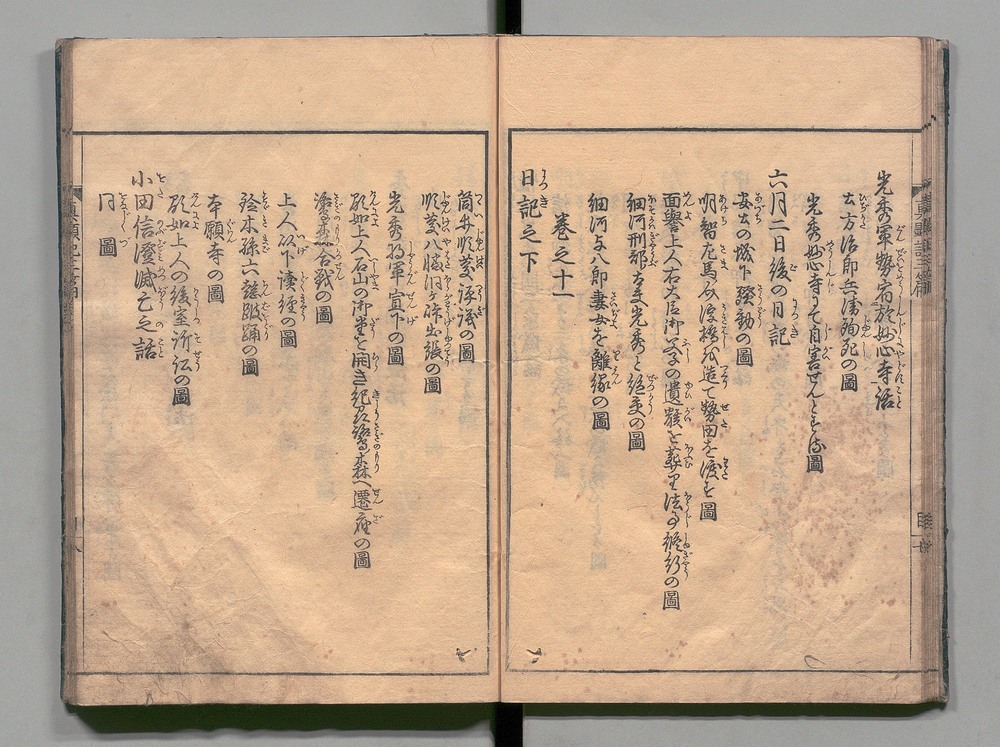 光秀軍勢宿於妙心寺話
古方治郎兵衛殉死の圖
光秀妙心寺にて自害せんとする圖
六月二日後の日記
安土の城下騒動の圖
明智左馬介浮橋を造て勢田を渡す圖
面誉上人右大臣御父子の遺骸を葬り法事修行の圖
細河刑部太夫光秀と絶交の圖
細河与八郎妻女を離縁の圖
巻之十一
日記之下
筒井順慶評議の圖
順慶八幡洞ヶ峠出張の圖
光秀将軍宣下の圖
顕如上人石山の御堂を開き紀州鷺森へ遷座の圖
鷺森合戦の圖
上人以下讀經の圖
鈴木孫六難跛踊の圖
本願寺の圖
顕如上人の後室訴訟の圖
小田信澄滅亡之話
同圖